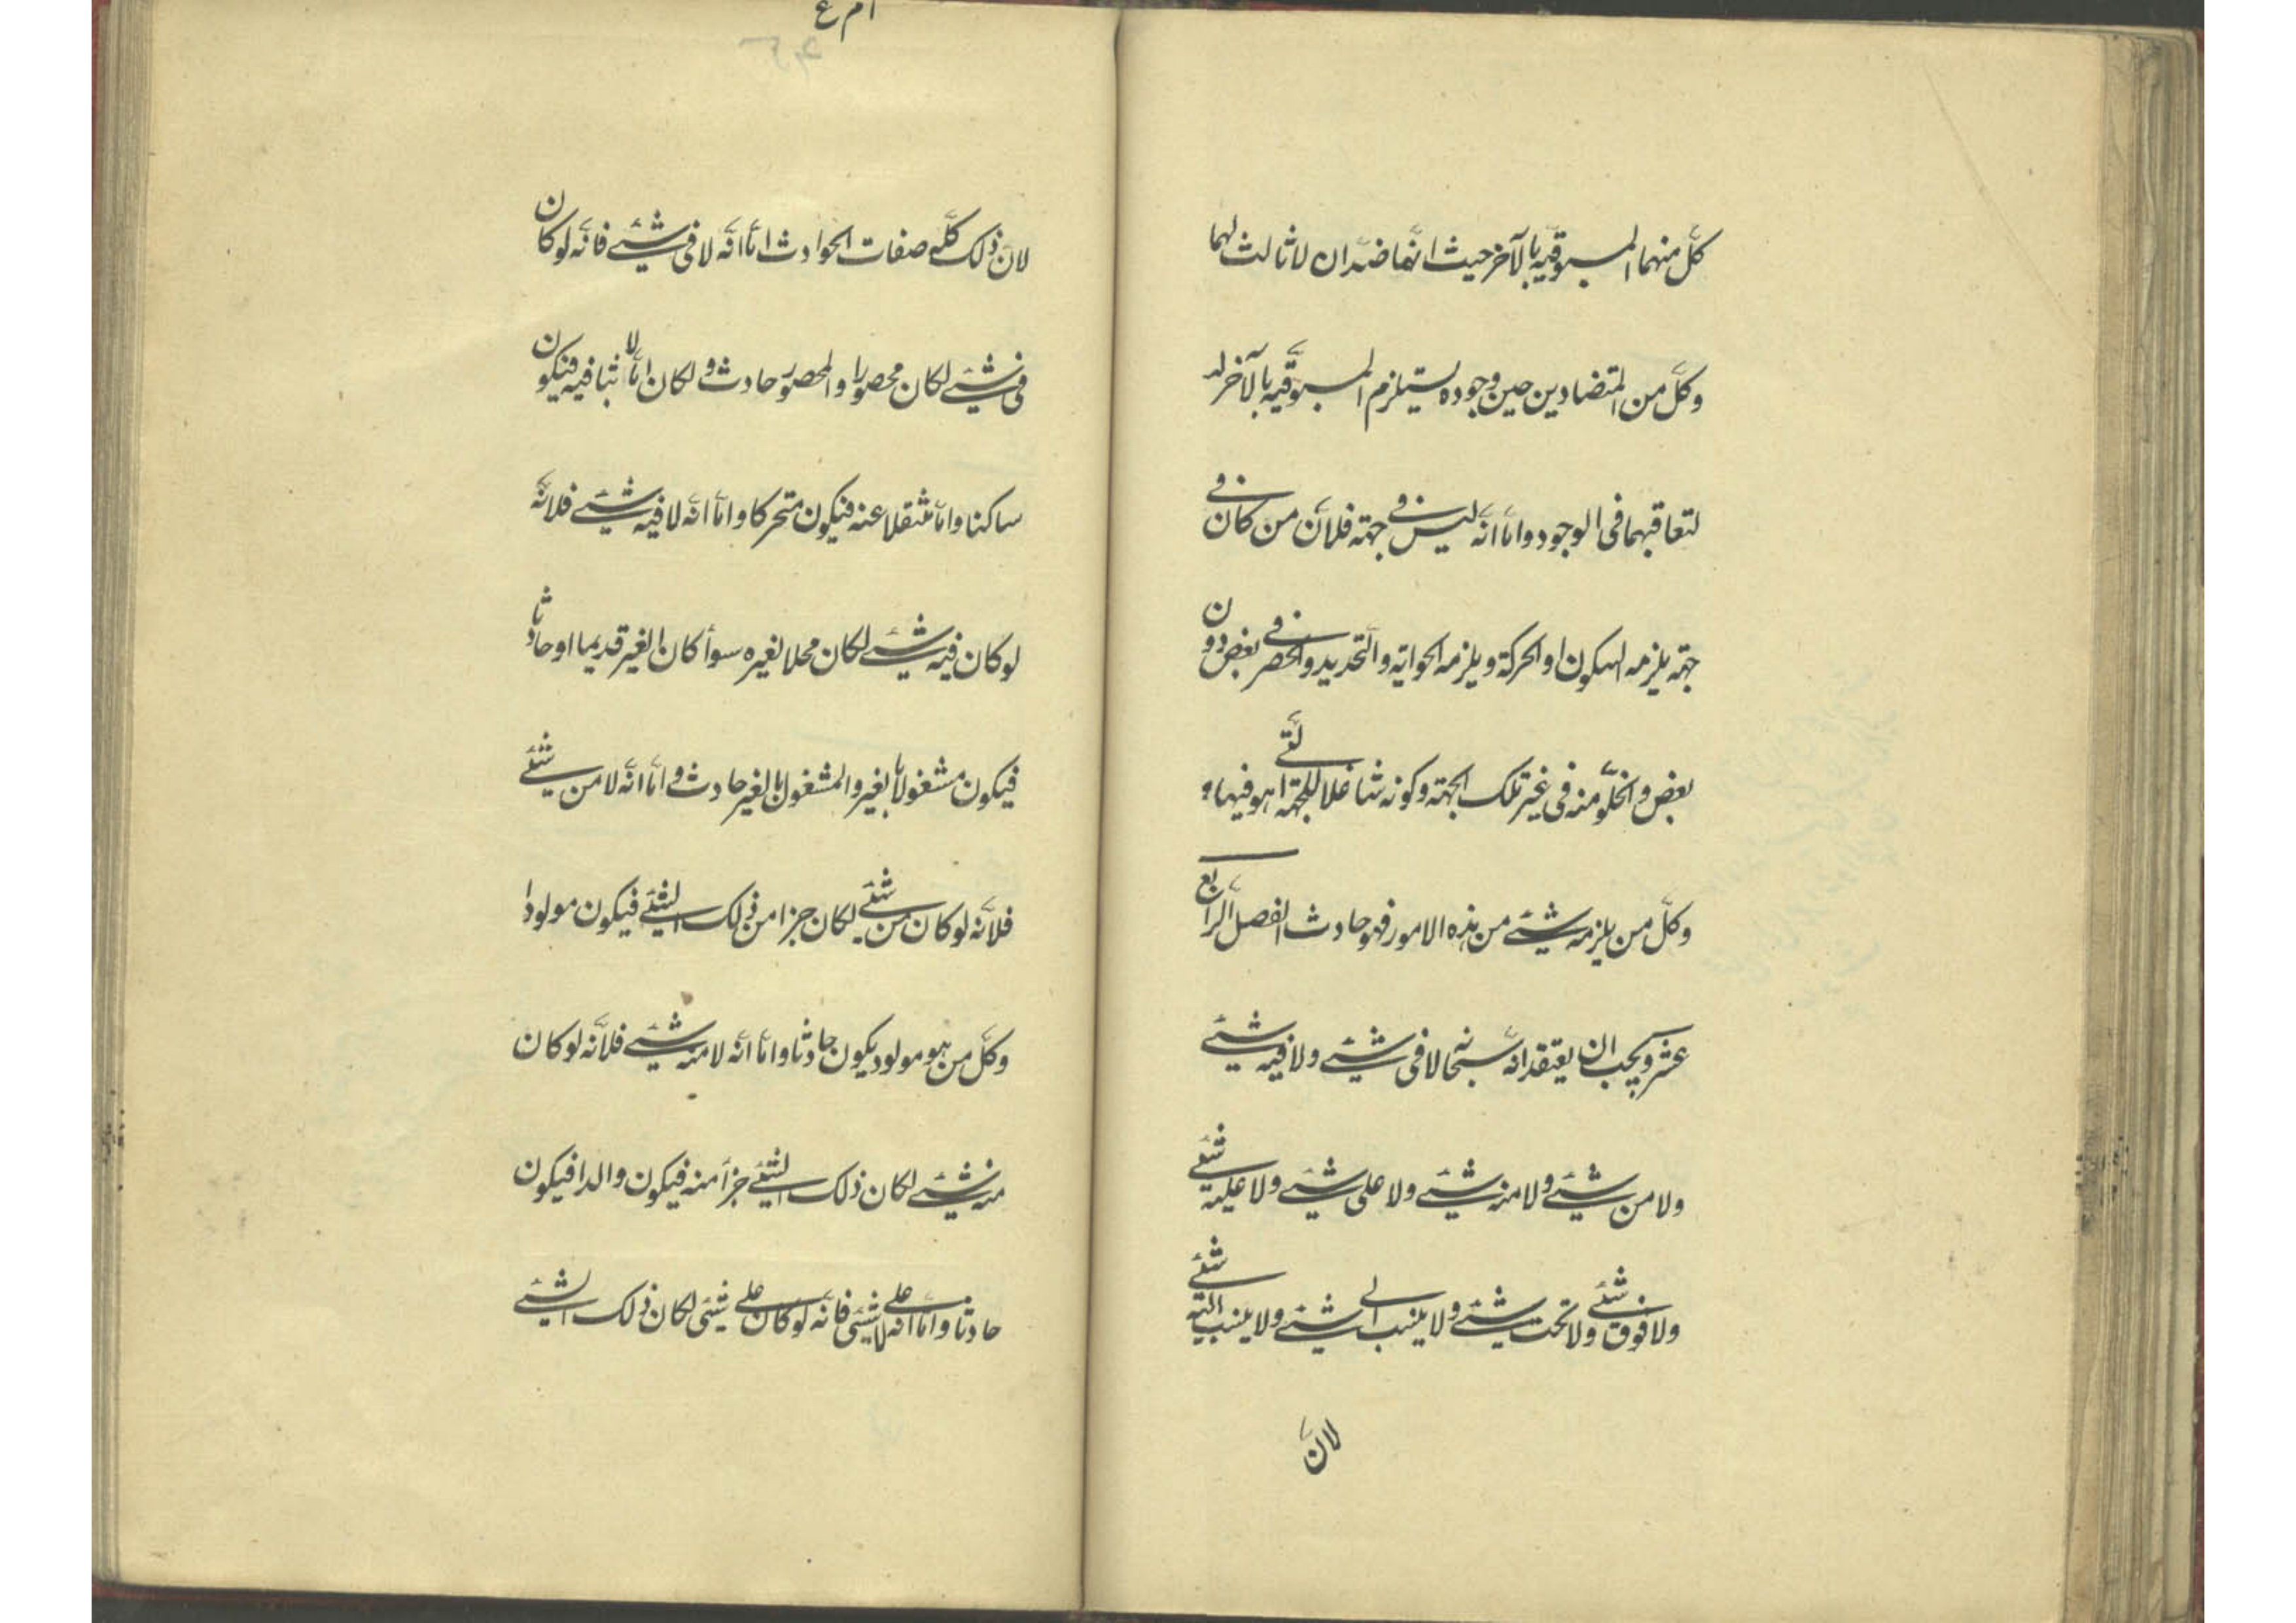 كلّ منهما المسبوقيّة بالآخر حيث انّهما ضدّان لا ثالث لهما
وكلّ من المتضادين حين وجوده يستلزم المسبوقيّة بالآخر له
لتعاقبهما فى الوجود وامّا انّه ليس فى جهته فلأنّ من كان فى
جهته يلزمه السكون او الحركة ويلزمه الحواية والتّحديد والحصر فى بعض دون
بعض والخلوّ منه فى غير تلك الجهة وكونه شاغلا للجهة الّتى هو فيها
وكلّ من يلزمه شيئ من هذه الامور فهو حادث الفصل الرّابع
عشر ويجب ان يعتقد انّه سبحانه لا فى شيئ ولا فيه شيئ
ولا من شيئ ولا منه شيئ ولا على شيئ ولا عليه شيئ
ولا فوق شيئ ولا تحت شيئ ولا ينسب الى شيئ ولا ينسب اليه شيئ
لانّ
لانّ ذلك كلّه صفات الحوادث امّا انّه لا فى شيئ فانّه لو كان
فى شيئ لكان محصورا والمحصور حادث ولكان امّا لابثا فيه فيكون
ساكنا وامّا منتقلا عنه فيكون متحركا وامّا انّه لا فيه شيئ فلانّه
لو كان فيه شيئ لكان محلا لغيره سوأ كان الغير قديما او حادثا
فيكون مشغولا بالغير والمشغول بالغير حادث وامّا انّه لا من شيئ
فلانّه لو كان من شيئ لكان جزا من ذلك الشيئ فيكون مولودا
وكلّ من هو مولود يكون حادثا وامّا انّه لا منه شيئ فلانّه لو كان
منه شيئ لكان ذلك الشيئ جزأ منه فيكون والدا فيكون
حادثا وامّا انّه لا على شيئ فانّه لو كان على شيئ لكان ذلك الشيئ